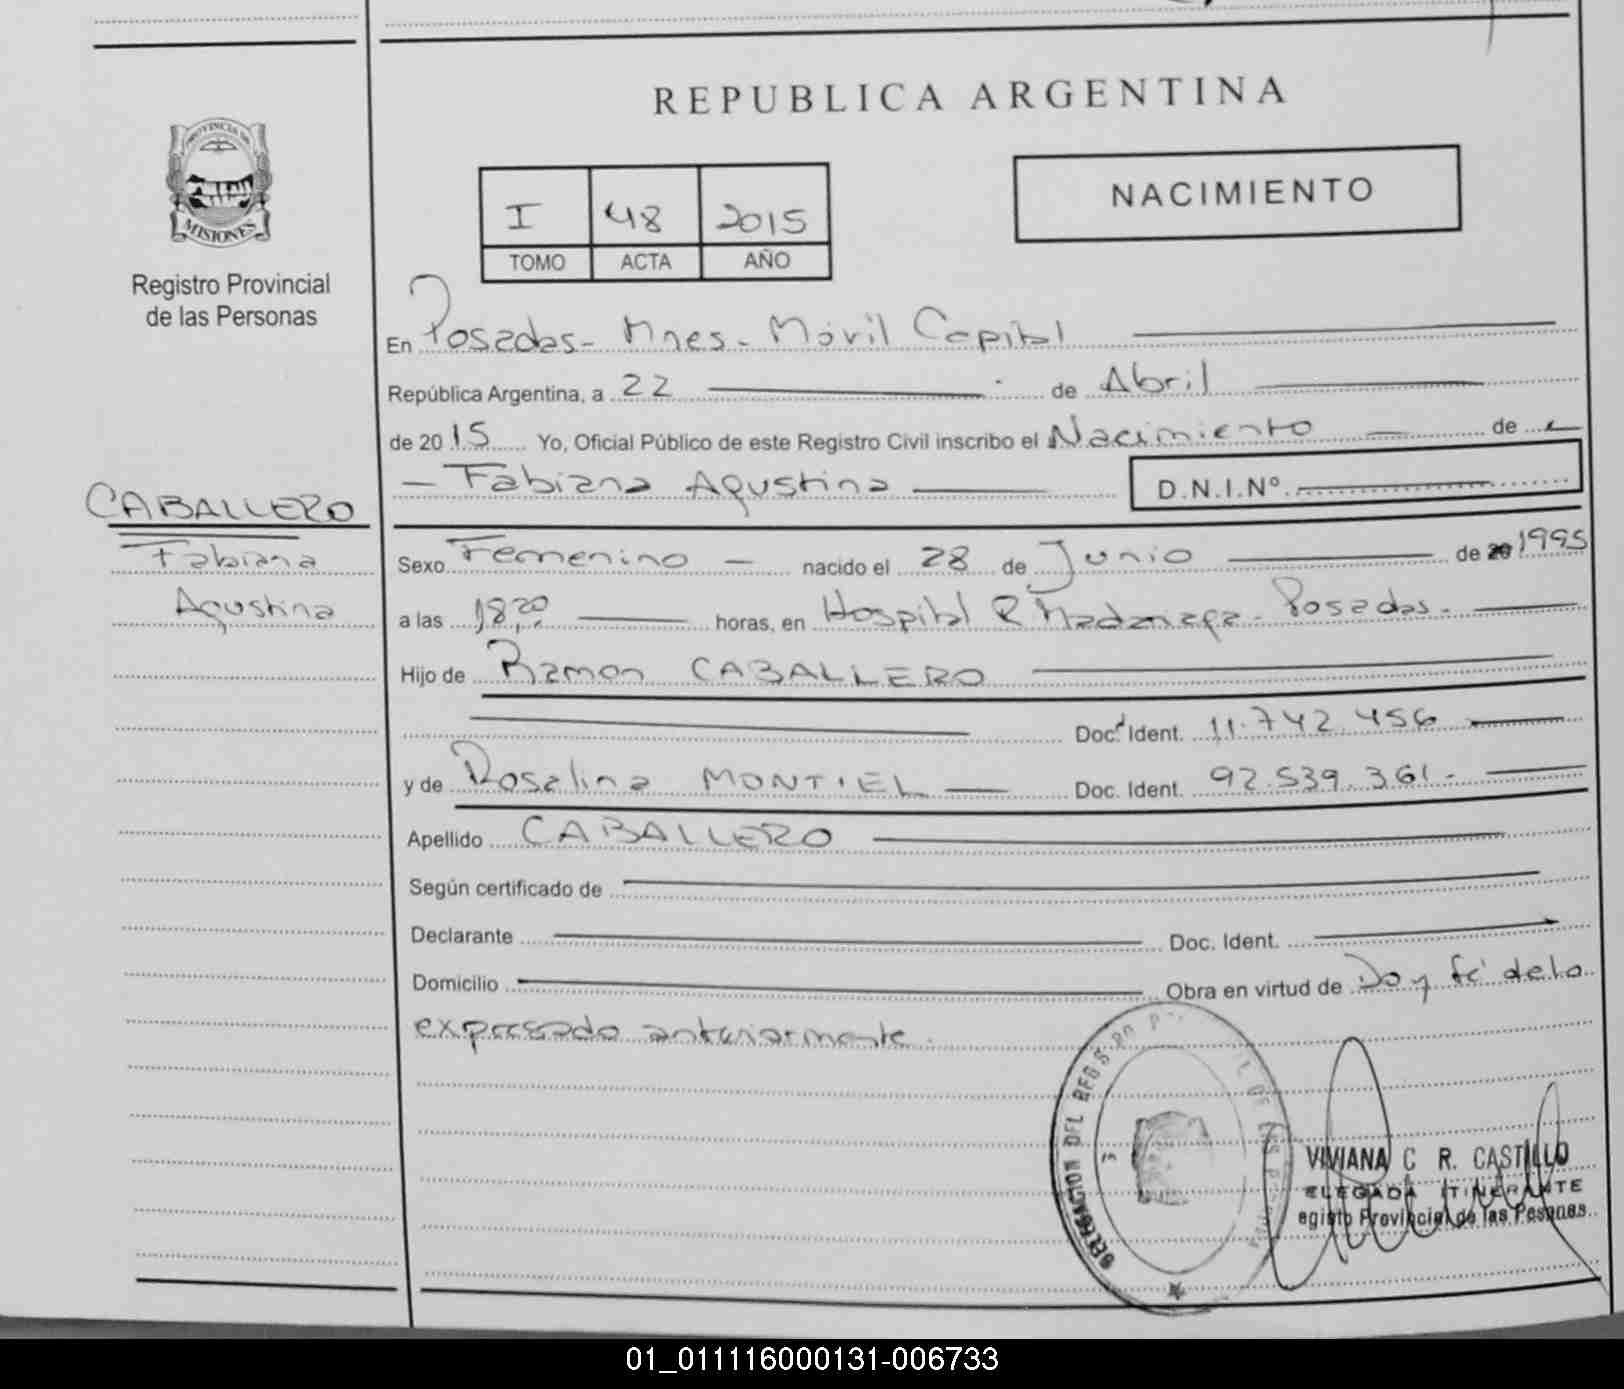 REPUBLICA ARGENTINA
PROVINCIA DE
MISIONES
Registro Provincial
de las Personas
I 48 2015
TOMO ACTA AÑO
NACIMIENTO
En Posadas - Mnes - Móvil Capital
República Argentina, a 22 de Abril
de 20 15 Yo, Oficial Público de este Registro Civil inscribo el Nacimiento de
Fabiana Agustina D.N.I.Nº
CABALLERO
Fabiana
Agustina
Sexo Femenino nacido el 28 de Junio de 20 1995
a las 18,20 horas, en Hospital R Madariaga - Posadas -
Hijo de Ramon CABALLERO
Doc. Ident. 11.742.456
y de Rosalina MONTIEL Doc. Ident. 92.539.361.-
Apellido CABALLERO
Según certificado de
Declarante Doc. Ident.
Domicilio Obra en virtud de Doy fé de lo
expresado anteriormente.
DELEGACION DEL REG
VIVIANA C R. CASTILLO
ELEGADA ITINERANTE
egisto Provincial de las Pesonas
01_011116000131-006733